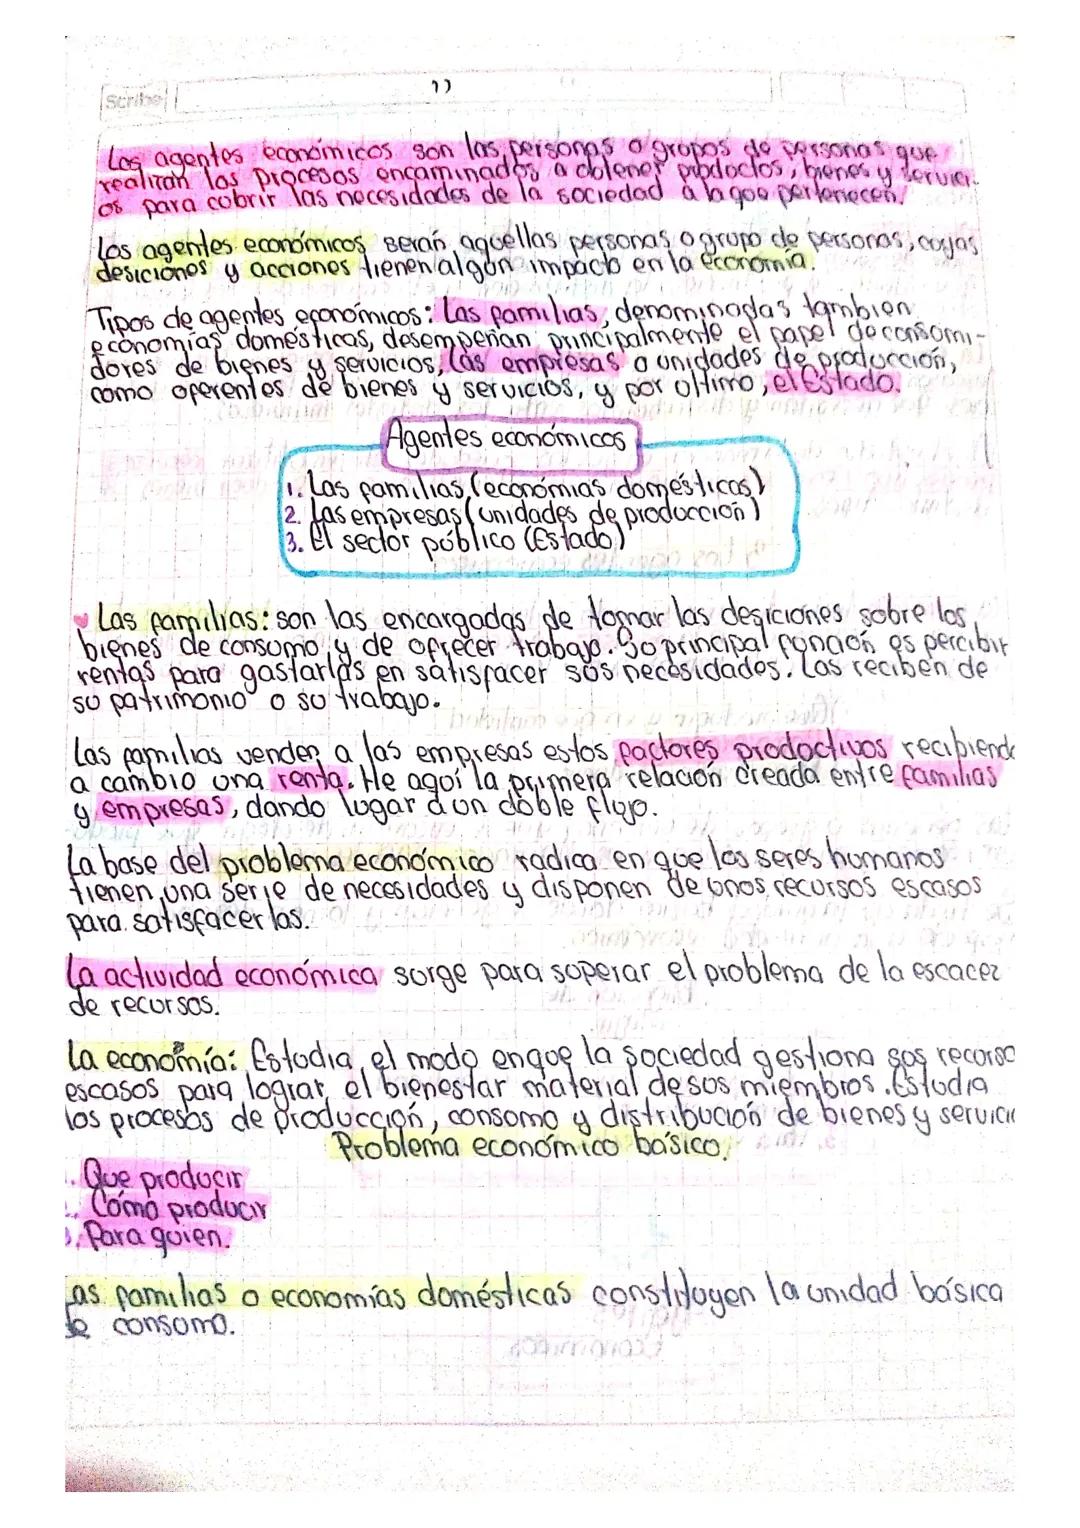 Scribe
11
Los agentes económicos son las personas o grupos de personas que
realizan los procesos encaminados a obtener productos, bienes y servici-
os para cobrir las necesidades de la sociedad a la que pertenecen.
Los agentes económicos serán aquellas personas o grupo de personas, cuyas
desiciones y acciones tienen algún impacto en la economía.
Tipos de agentes económicos: Las familias, denominadas tambien
economías domésticas, desempeñan principalmente el papel de consumi-
dores de bienes y servicios, las empresas o unidades de producción,
como oferentes de bienes y servicios, y por ultimo, el Estado.
Agentes económicos
1. Las familias (economías domésticas)
2. Las empresas (unidades de producción)
3. El sector público (Estado)
Las familias: son las encargadas de tomar las desiciones sobre los
bienes de consumo y de ofrecer trabajo. Su principal función es percibir
rentas para gastarlas en satisfacer sus necesidades. Las reciben de
su patrimonio o su trabajo.
Las familias venden a las empresas estos factores productivos recibiendo
a cambio una renta. He aquí la primera relación creada entre familias
y empresas, dando lugar a un doble flujo.
La base del problema económico radica en que los seres humanos
tienen una serie de necesidades y disponen de unos recursos escasos
para satisfacerlas.
La actividad económica surge para superar el problema de la escacez
de recursos.
La economía: Estudia el modo enque la sociedad gestiona sus recurso
escasos para lograr el bienestar material de sus miembros. Estudia
los procesos de producción, consumo y distribución de bienes y servici
Problema económico básico.
. Que producir
. Cómo producir
. Para quien.
as familias o economías domésticas constituyen la unidad básica
de consumo.